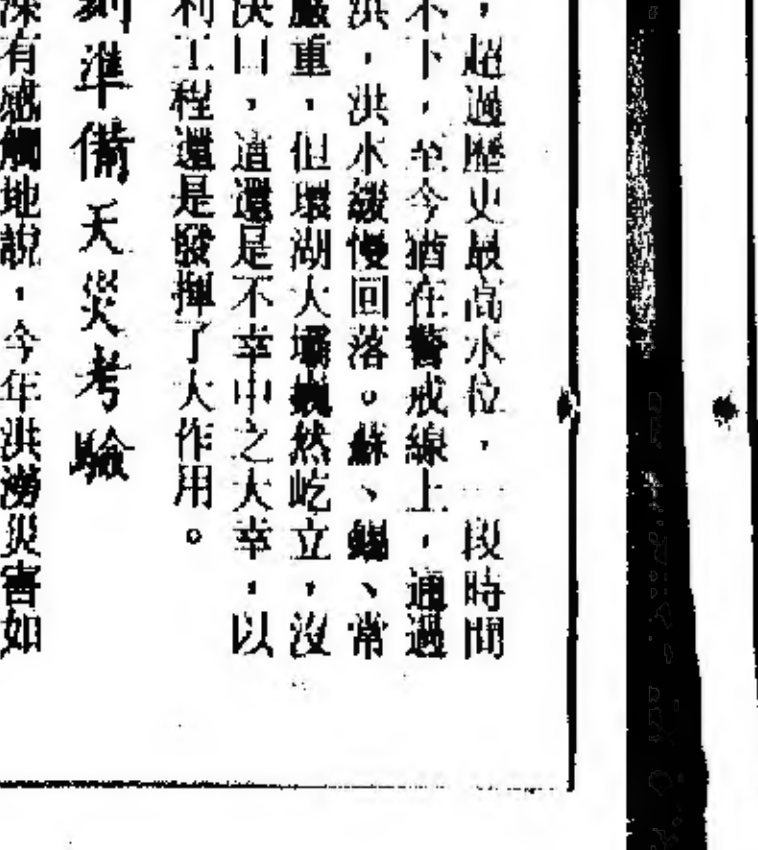 ，超過歷史最高水位，一段時間
不下，至今猶在警戒線上，通過
洪，洪水緩慢回落。蘇、錫、常
嚴重，但環湖大壩巍然屹立，沒
決口，這還是不幸中之大幸，以
利工程還是發揮了大作用。
刻準備天災考驗
深有感觸地說，今年洪澇災害如